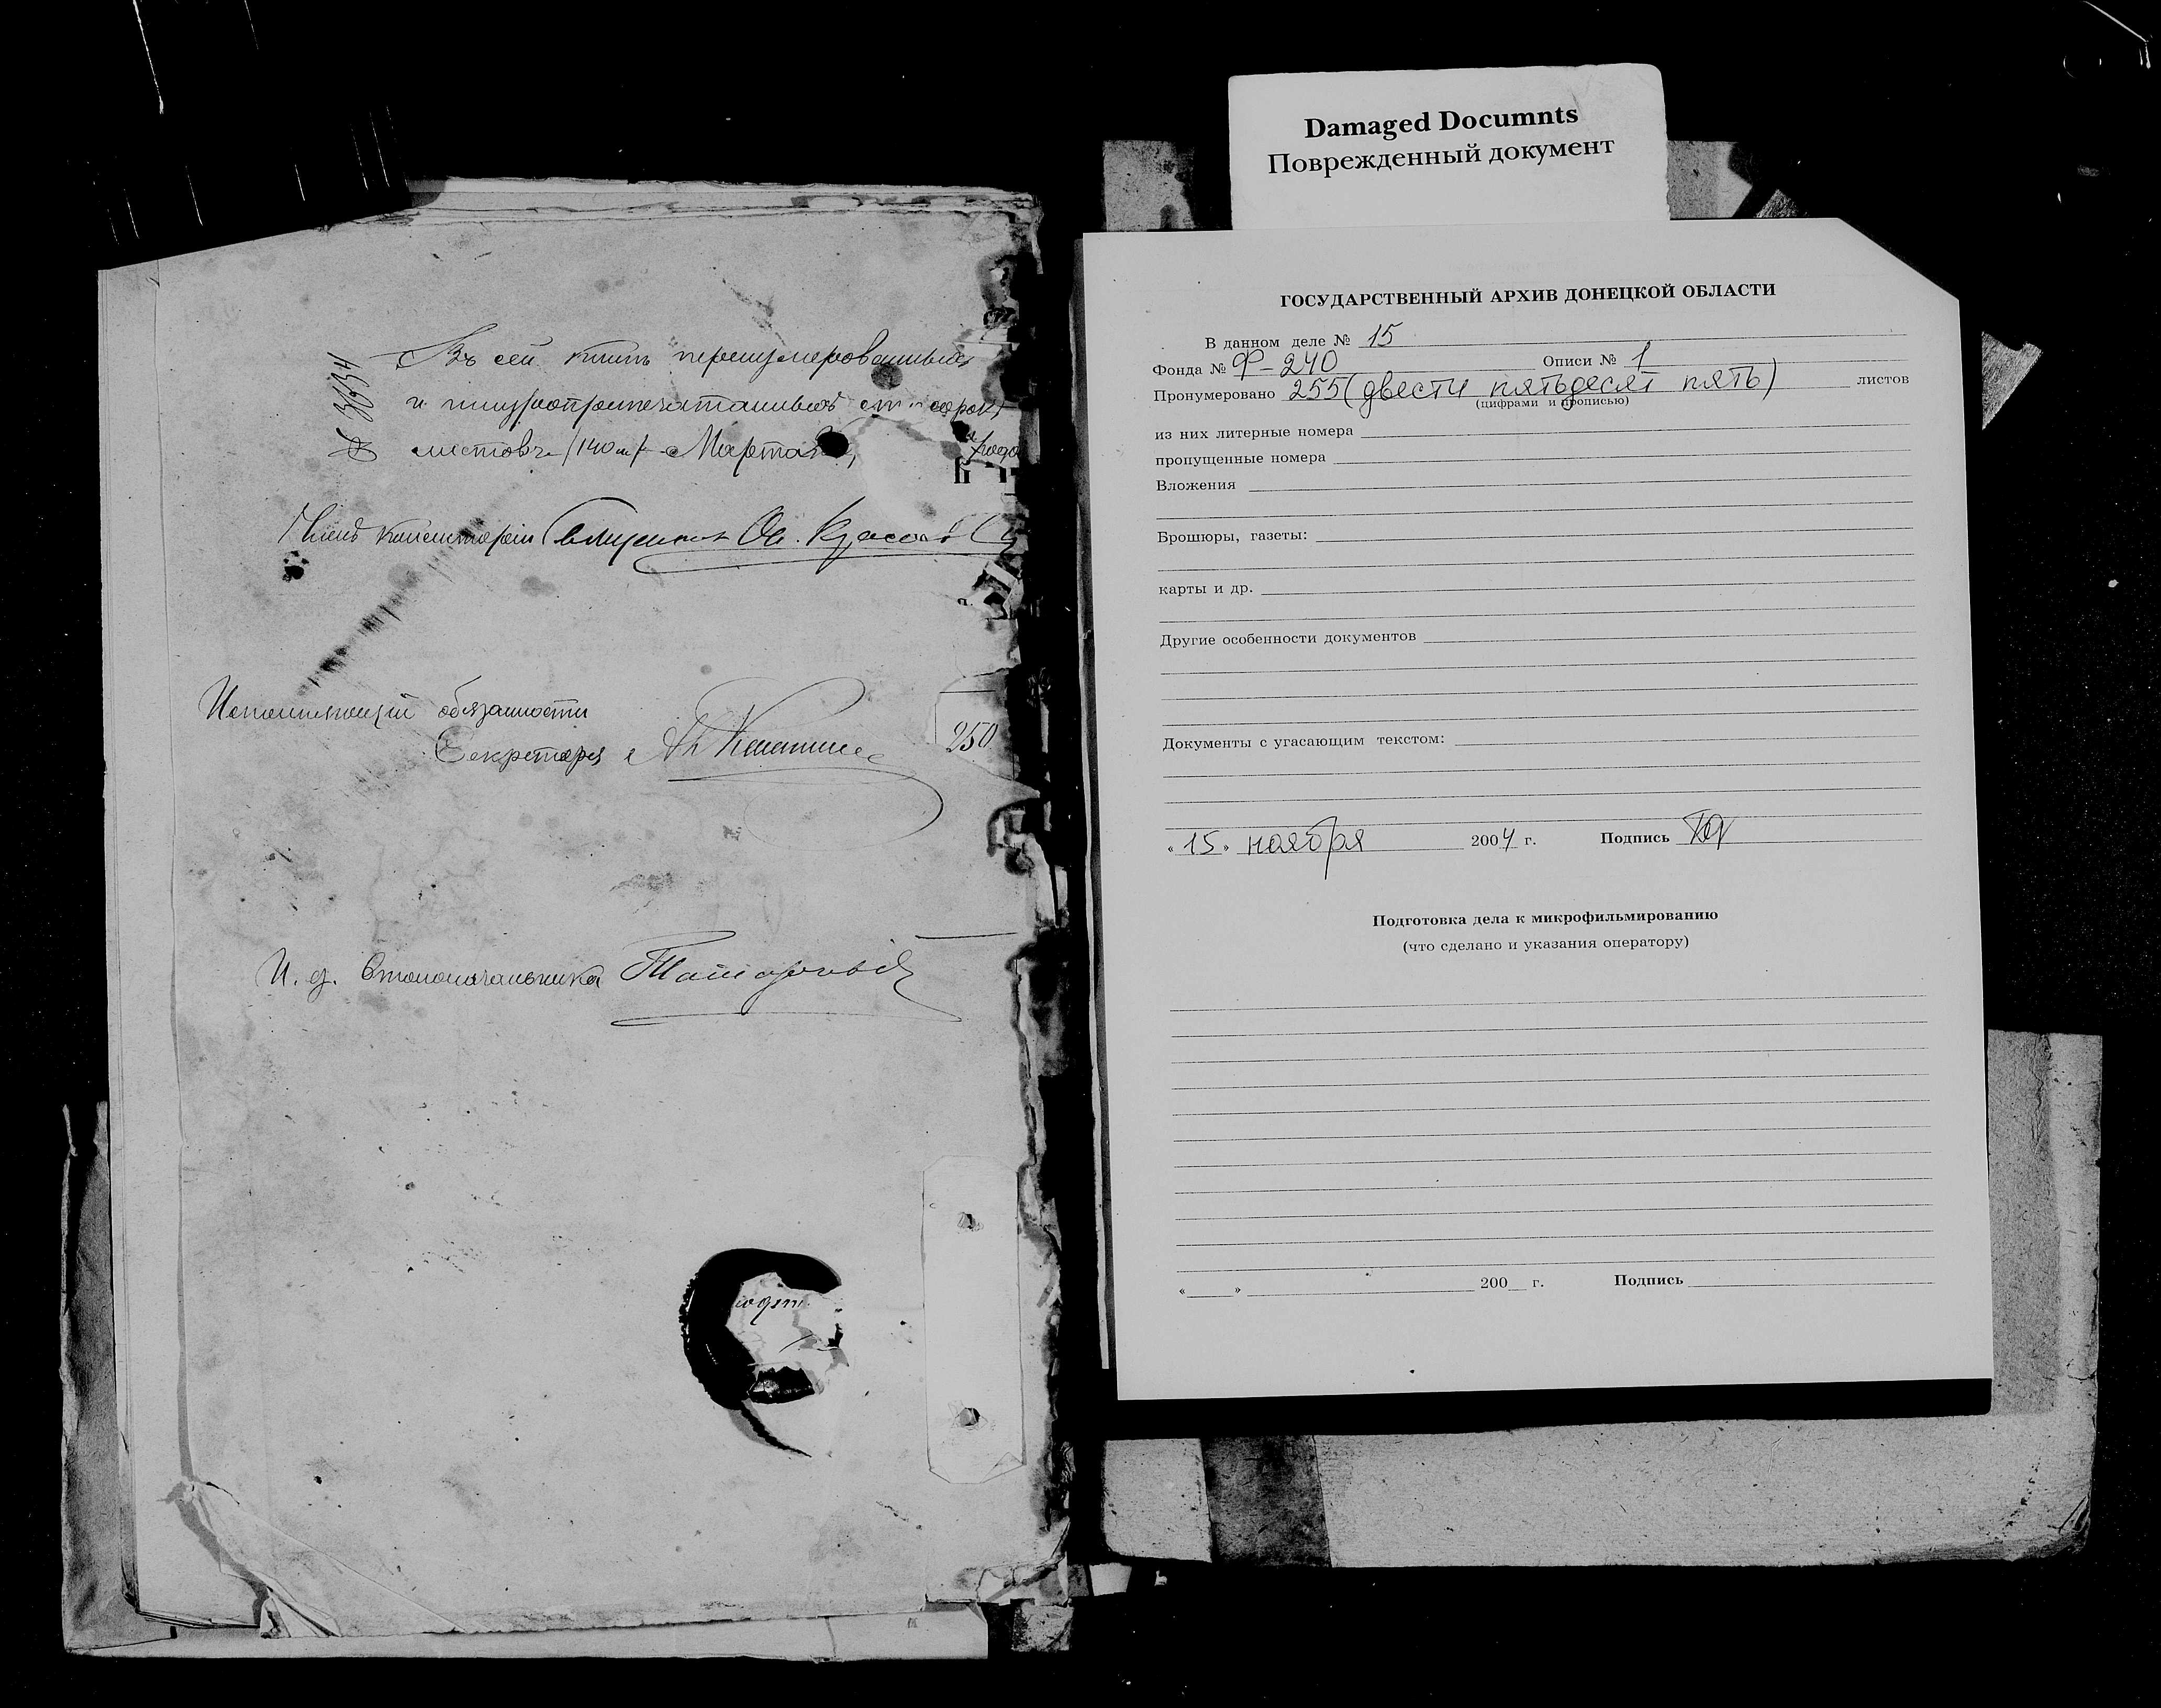 № 3634
Въ сей книгѣ перенумерованныхъ
и шнуропропечатанныхъ сто сорокъ
листовъ /140 л/ Марта года
Членъ Консисторіи Священникъ
Исполняющій обязанности
Секретаря
250
И. д. Столоначальника
Damaged Documnts
Поврежденный документ
ГОСУДАРСТВЕННЫЙ АРХИВ ДОНЕЦКОЙ ОБЛАСТИ
В данном деле № 15
Фонда № Ф-240 Описи № 1
Пронумеровано 255 (двести пятьдесят пять) листов
(цифрами и прописью)
из них литерные номера
пропущенные номера
Вложения
Брошюры, газеты:
карты и др.
Другие особенности документов
Документы с угасающим текстом:
«15» ноября 2004 г. Подпись
Подготовка дела к микрофильмированию
(что сделано и указания оператору)
« » 200 г. Подпись